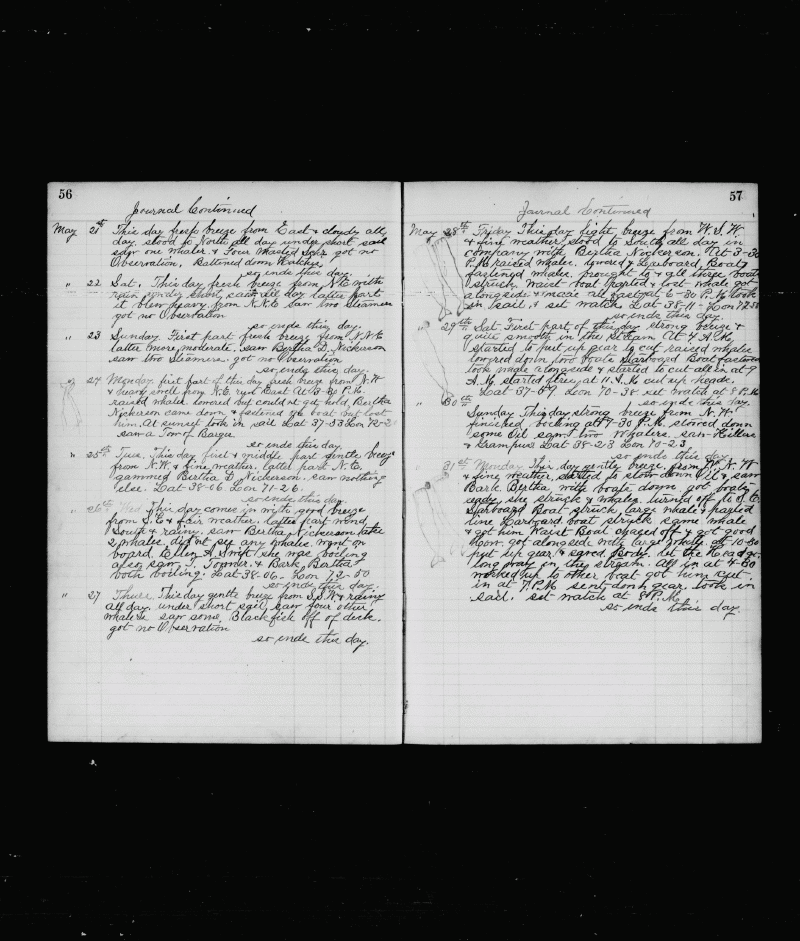 56
Journal Continued
May 21st This day fresh breeze from East & cloudy all
day. stood to North all day under short sail
saw one whaler & Four Masted got no
Observation. Battened down
so ends this day.
" 22 Sat. This day fresh breeze from N.E. with
rain under short sail all day latter part
it blew heavy from N.N.E saw two Steamers
got no Observation
so ends this day.
" 23 Sunday. First part fresh breeze from N.N.E
latter more moderate. saw Bertha D. Nickerson
saw two Steamers. got no Observation
so ends this day.
24 Monday, first part of this day fresh breeze from N.W
& heavy swell from N.E. and East At 3-30 P.M.
raised whales lowered but could not get hold, Bertha
Nickerson came down & fastened boat but lost
him. At sunset took in sail Lat 37-33 Lon 72-
saw a Barge
so ends this day.
" 25th Tues. This day first & middle part gentle breeze
from N.W. & fine weather. latter part N.E.
gammed Bertha D. Nickerson. saw nothing
else. Lat-38-06 Lon 71-26.
so ends this day.
" 26th Wed this day comes in with good breeze
from S.E & fair weather. latter part wind
South & rainy. saw Bertha Nickerson take
2 whales. did not see any whales went on
board Ellen A. Swift she was boiling
also saw J. Towner. & Bark Bertha
both boiling. Lat-38-06- Lon 72-50
so ends this day.
" 27 Thurs. This day gentle breeze from S.S.W & rainy
all day. under short sail, saw four other
whalers saw some Blackfish off of deck.
got no Observation
so ends this day.
57
Journal Continued
May 28th Friday This day light breeze from W.S.W
& fine weather stood to South all day in
company with Bertha Nickerson. At 3-30
P.M. raised whales. lowered & Larboard Boat
fastened whales. brought to & all three boats
struck. Waist boat parted & lost whale got
alongside & all fast at 6-30 P.M. took
in sail. & set watch. Lat-38-11- Lon 72-
so ends this day.
" 29th Sat First part of this day strong breeze &
quite smooth in the Stream. At 4 A.M.
started to put up gear to cut raised whales
lowered down two boats Starboard Boat fastened
took whale alongside & started to cut all in at 9
A.M. started fires at 11 A.M. cut up heads.
Lat 37-59 Lon 70-38 set watch at 8 P.M.
so ends this day.
" 30th Sunday This day strong breeze from N.W.
finished boiling at 9-30 P.M. stowed down
some Oil saw two Whalers. saw Killers
& Grampus Lat 38-23 Lon 70-23
so ends this day
" 31st Monday This day gentle breeze from W.N.W
& fine weather, started to stow down Oil & saw
Bark Bertha with boats down got boats
ready she struck & whales turned off to S.E.
Starboard Boat struck large whale & parted
line Larboard boat struck same whale
& got him Waist Boat chased off & got good
now. got alongside with large whale at 10-30
put up gear & saved Body. let the Head go
long way in this stream. All in at 4-30
worked up to other boat got him cut
in at 7 P.M. sent down gear. took in
sail. set watch at 8 P.M.
so ends this day.